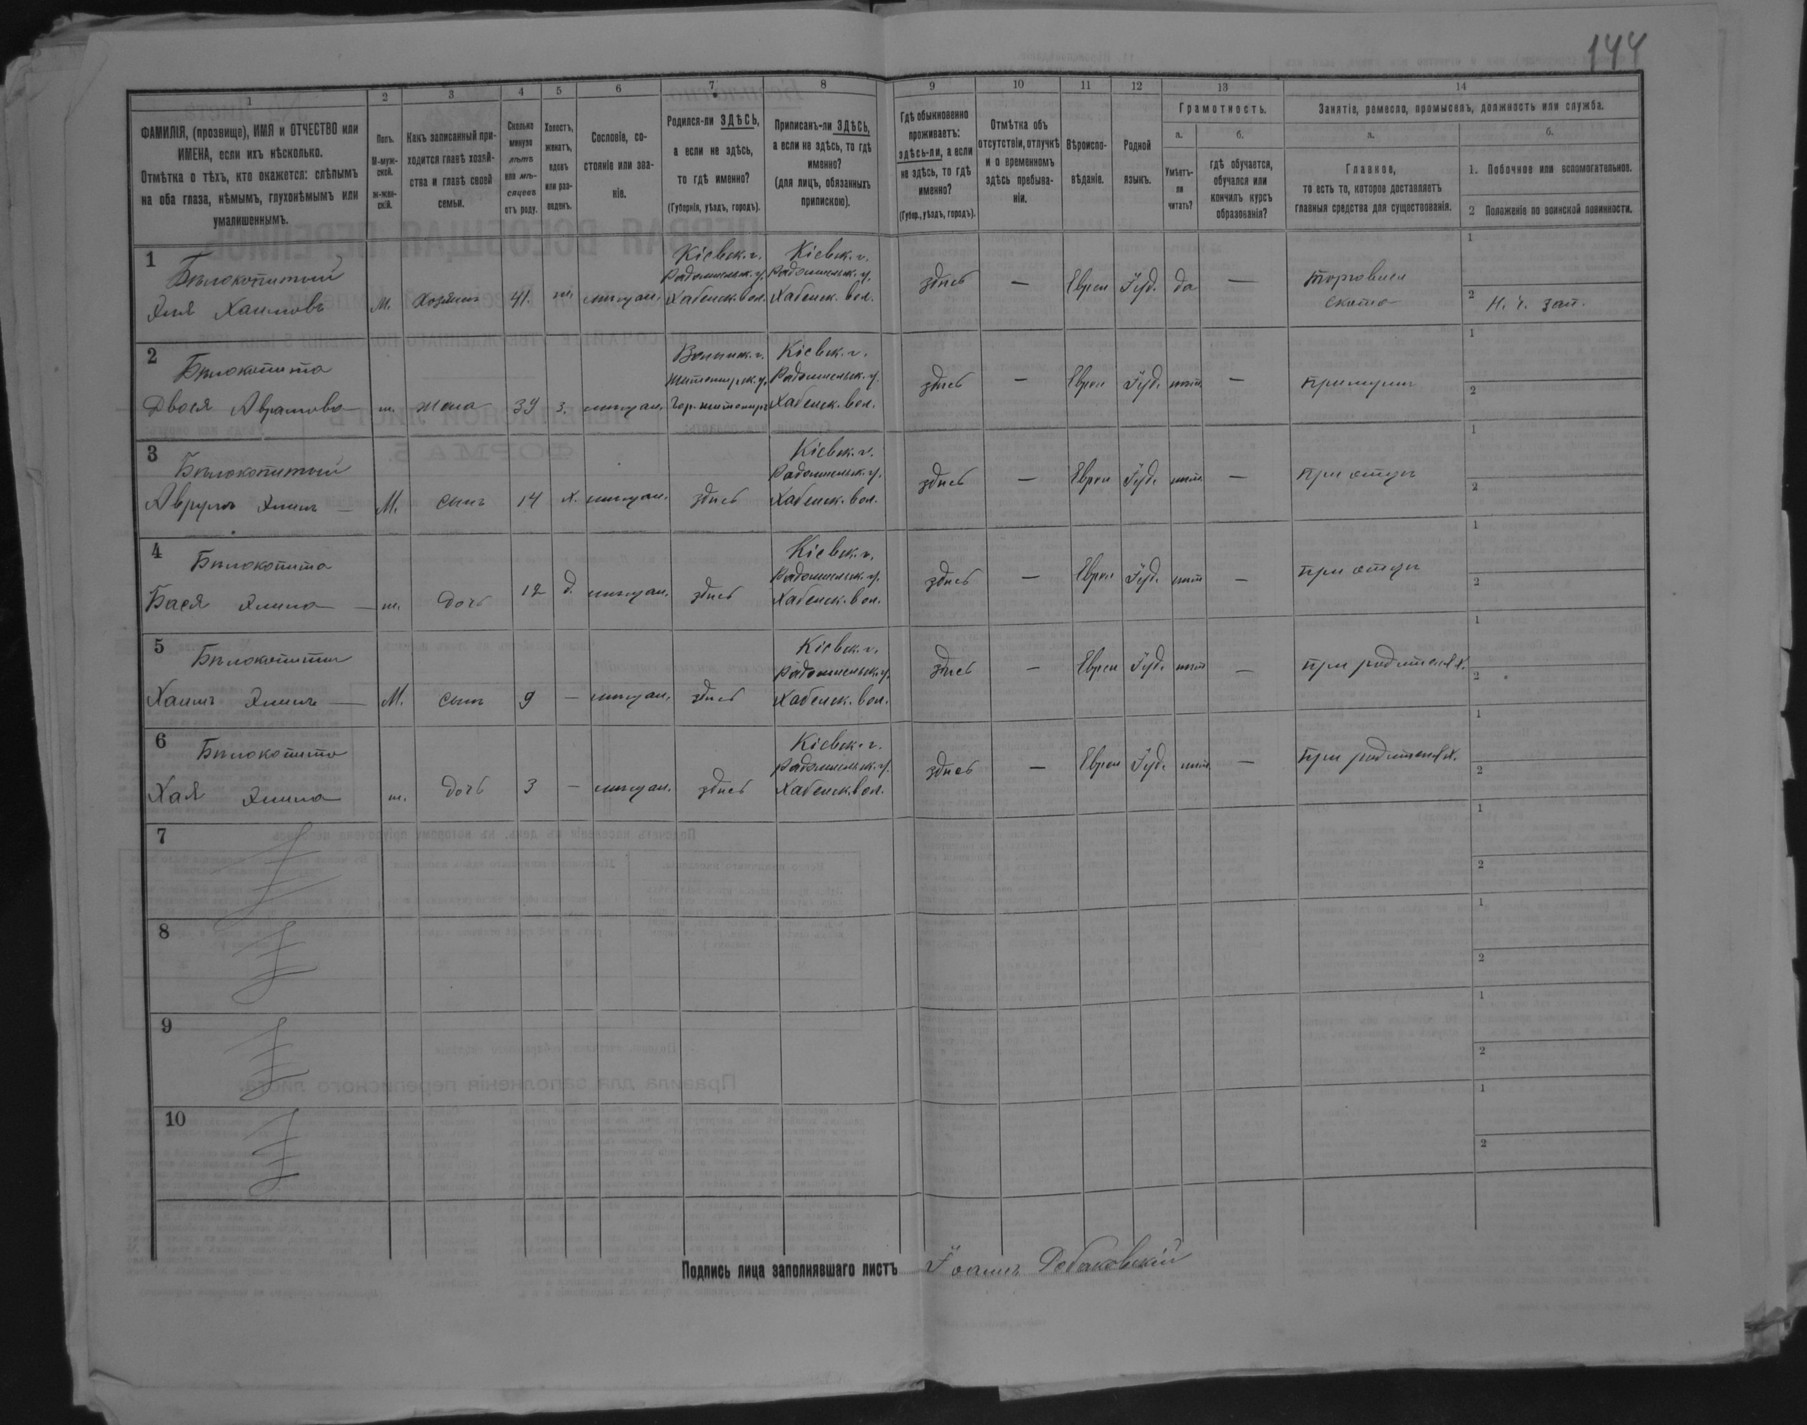 144
1 2 3 4 5 6 7 8 9 10 11 12 13 14
ФАМИЛІЯ, (прозвище), ИМЯ и ОТЧЕСТВО или
ИМЕНА, если ихъ нѣсколько.
Отмѣтка о тѣхъ, кто окажется: слѣпымъ
на оба глаза, нѣмымъ, глухонѣмымъ или
умалишеннымъ.
Полъ.
М-муж-
ской.
ж-жен-
скій.
Какъ записанный при-
ходится главѣ хозяй-
ства и главѣ своей
семьи.
Сколько
минуло
лѣтъ
или мѣ-
сяцевъ
отъ роду.
Холостъ,
женатъ,
вдовъ
или раз-
веденъ.
Сословіе, со-
стояніе или зва-
ніе.
Родился-ли ЗДѢСЬ,
а если не здѣсь,
то гдѣ именно?
(Губернія, уѣздъ, городъ).
Приписанъ-ли ЗДѢСЬ,
а если не здѣсь, то гдѣ
именно?
(для лицъ, обязанныхъ
припискою).
Гдѣ обыкновенно
проживаетъ:
здѣсь-ли, а если
не здѣсь, то гдѣ
именно?
(Губер., уѣздъ, городъ).
Отмѣтка объ
отсутствіи, отлучкѣ
и о временномъ
здѣсь пребыва-
ніи.
Вѣроиспо-
вѣданіе.
Родной
языкъ.
Грамотность.
а.
Умѣетъ-
ли
читать?
б.
гдѣ обучается,
обучался или
кончилъ курсъ
образованія?
Занятіе, ремесло, промыселъ, должность или служба.
а.
Главное,
то есть то, которое доставляетъ
главныя средства для существованія.
б.
1. Побочное или вспомогательное.
2 Положеніе по воинской повинности.
1
Бѣлокопытый
Эля Хаимовъ
М. Хозяинъ 41. жн. мѣщан.
Кіевск. г.
Радомысльск. у.
Хабенск. вол.
Кіевск. г.
Радомысльск. у.
Хабенск. вол.
здѣсь — Еврей Іуд. да —
Торговля
скота
1
2 Н. ч. зап.
2
Бѣлокопыта
Двося Аврамова — ж. жена 39 з. мѣщан.
Волынск. г.
Житомірск. у.
Гор. Житомиръ
Кіевск. г.
Радомысльск. у.
Хабенск. вол.
здѣсь — Еврей Іуд. нѣт —
при мужѣ
1
2
3
Бѣлокопытый
Аврумъ Элинъ — М. сынъ 14 х. мѣщан. здѣсь
Кіевск. г.
Радомысльск. у.
Хабенск. вол.
здѣсь — Еврей Іуд. нѣт —
при отцѣ
1
2
4
Бѣлокопыта
Бася Элина — ж. дочь 12 д. мѣщан. здѣсь
Кіевск. г.
Радомысльск. у.
Хабенск. вол.
здѣсь — Еврей Іуд. нѣт —
при отцѣ
1
2
5
Бѣлокопытый
Хаимъ Элинъ — М. сынъ 9 — мѣщан. здѣсь
Кіевск. г.
Радомысльск. у.
Хабенск. вол.
здѣсь — Еврей Іуд. нѣт —
при родителях.
1
2
6
Бѣлокопыта
Хая Элина ж. дочь 3 — мѣщан. здѣсь
Кіевск. г.
Радомысльск. у.
Хабенск. вол.
здѣсь — Еврей Іуд. нѣт. —
при родителях.
1
2
7
1
2
8
1
2
9
1
2
10
1
2
Подпись лица заполнявшаго листъ Іоаннъ